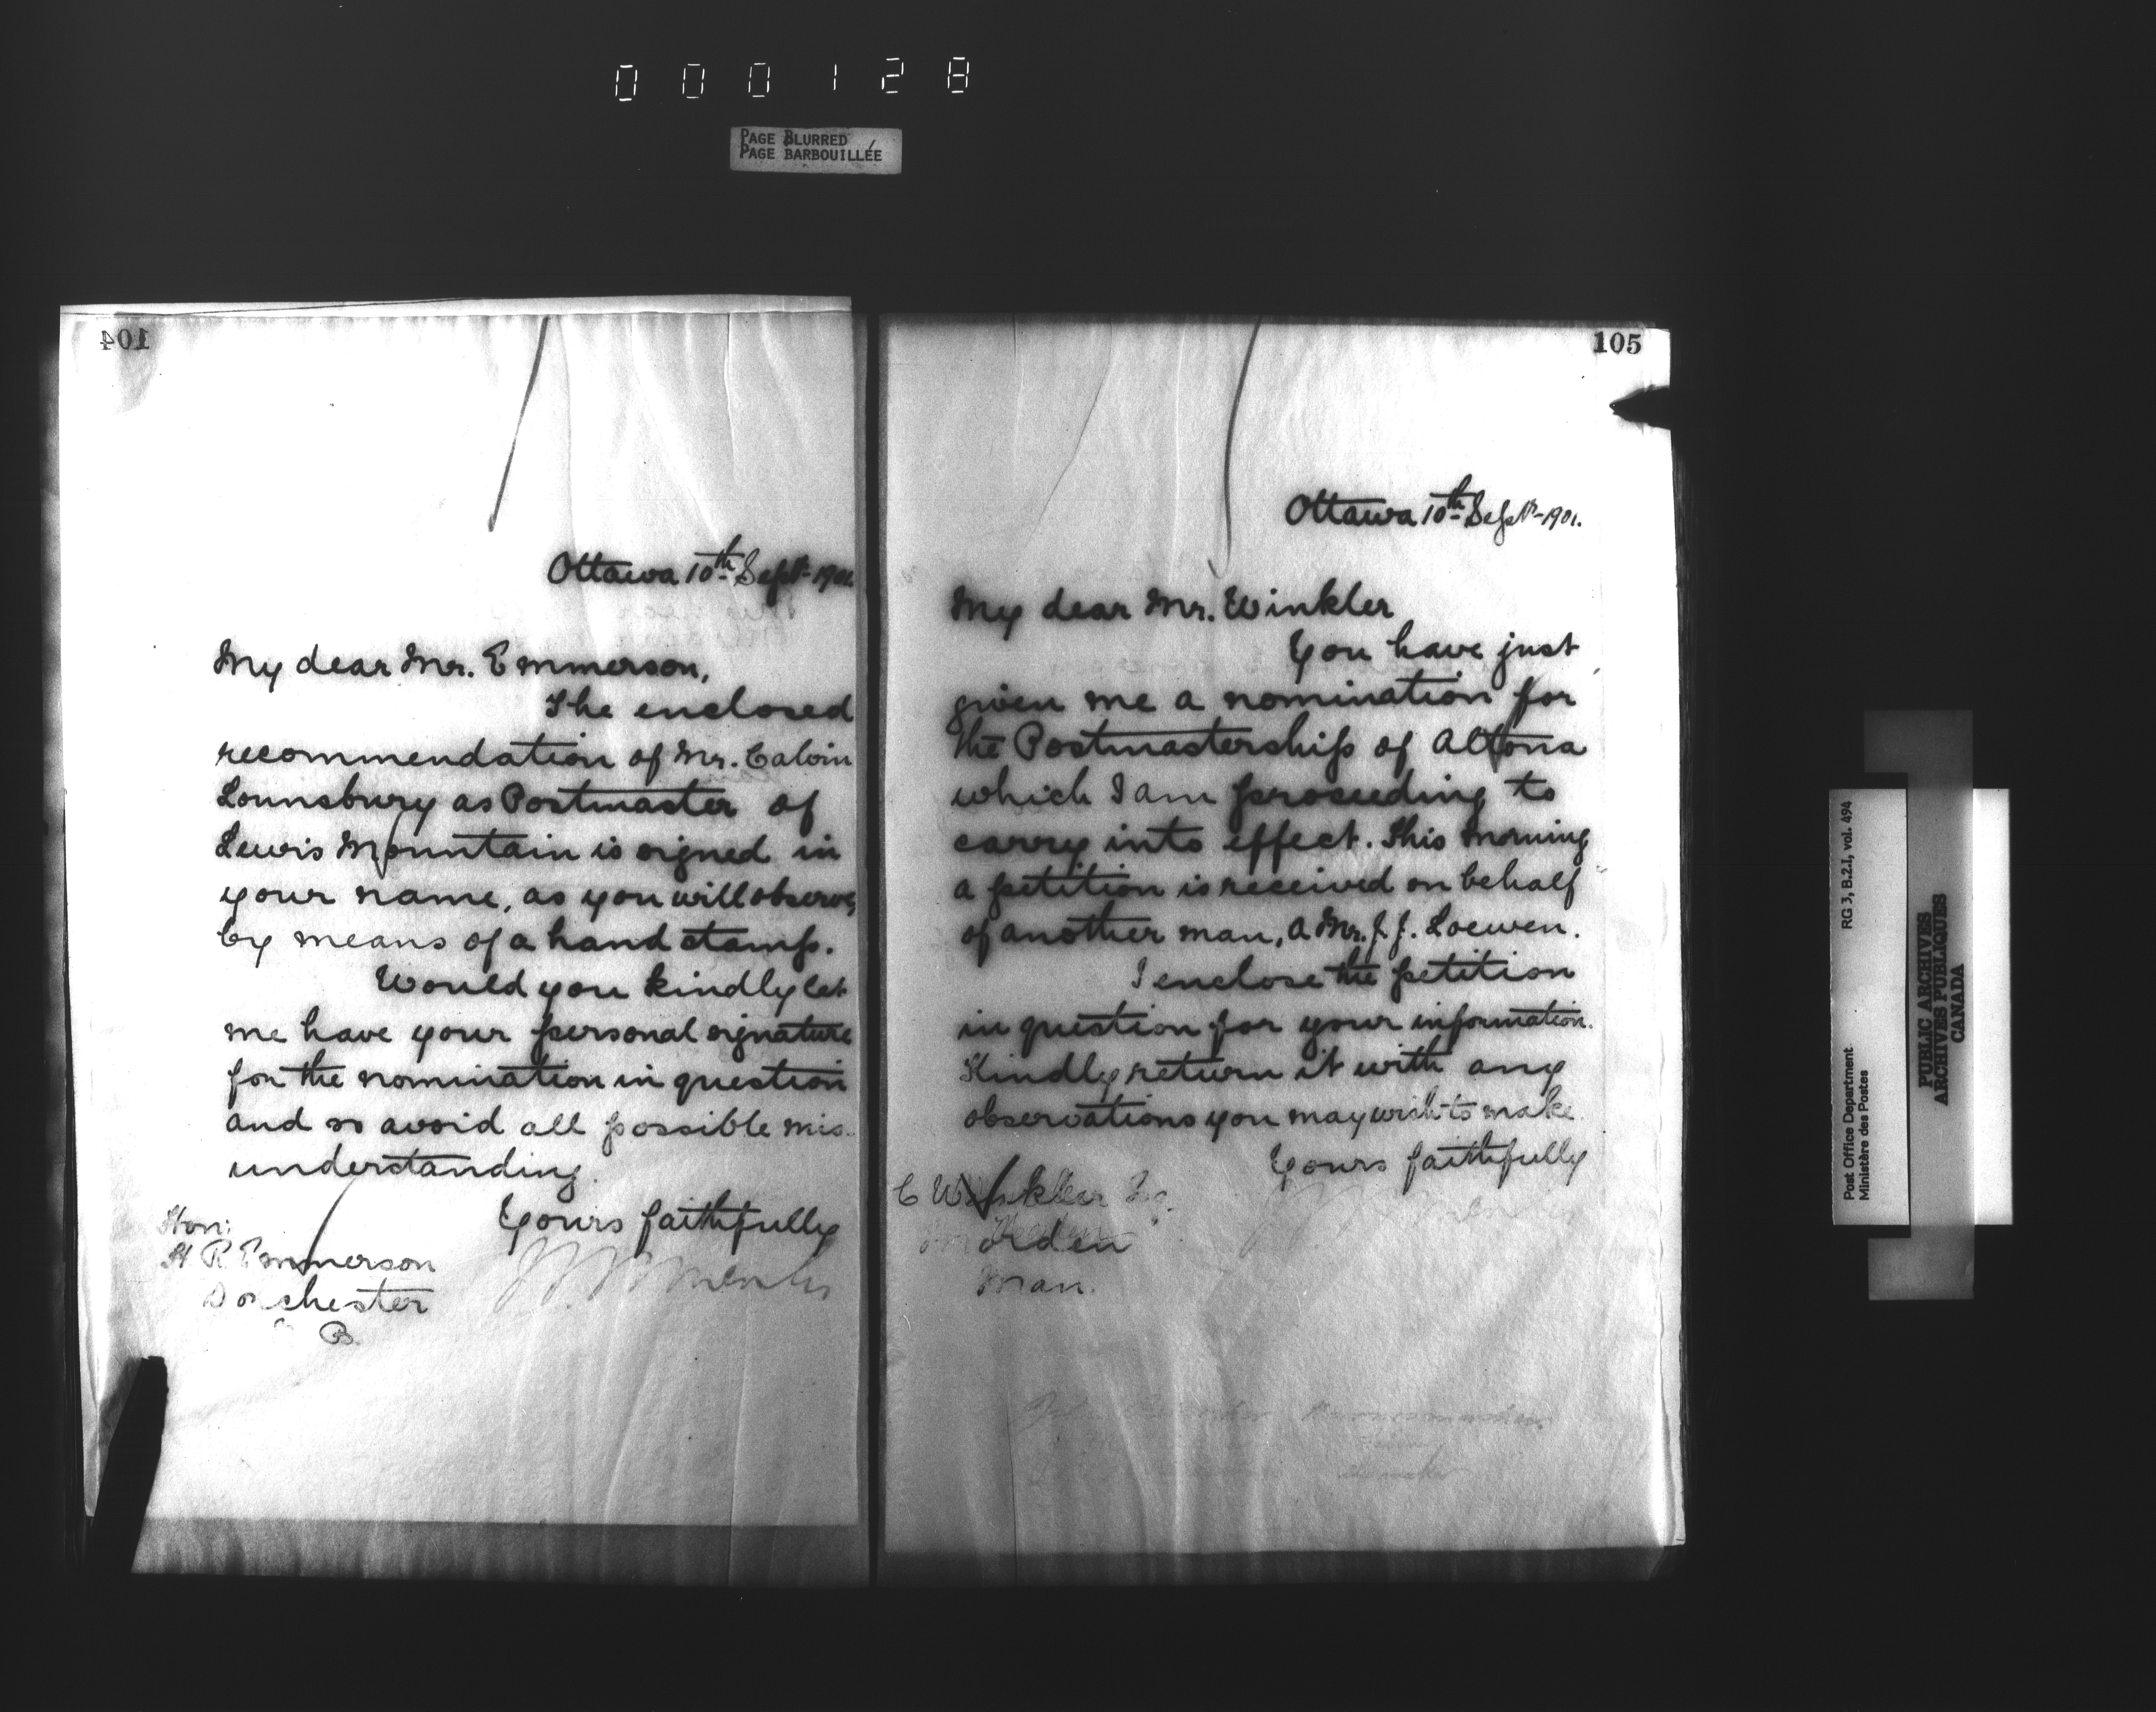 000128
PAGE BLURRED
PAGE BARBOUILLÉE
104
Ottawa 10th Sept. 1901.
My dear Mr. Emmerson,
The enclosed
recommendation of Mr. Calvin
Lounsbury as Postmaster of
Lewis Mountain is signed in
your name, as you will observe,
by means of a hand stamp.
Would you kindly let
me have your personal signature
for the nomination in question
and so avoid all possible mis-
understanding.
Yours faithfully
Hon:
H R Emmerson
Dorchester
B.
105
Ottawa 10th Sept. 1901.
My dear Mr. Winkler
You have just
given me a nomination for
the Postmastership of Altona
which I am proceeding to
carry into effect. This morning
a petition is received on behalf
of another man, a Mr. J. J. Loewen.
I enclose the petition
in question for your information.
Kindly return it with any
observations you may wish to make.
Yours faithfully
C Winkler Esq.
Morden
Man.
Post Office Department RG 3, B.2.1, vol. 494
Ministère des Postes
PUBLIC ARCHIVES
ARCHIVES PUBLIQUES
CANADA